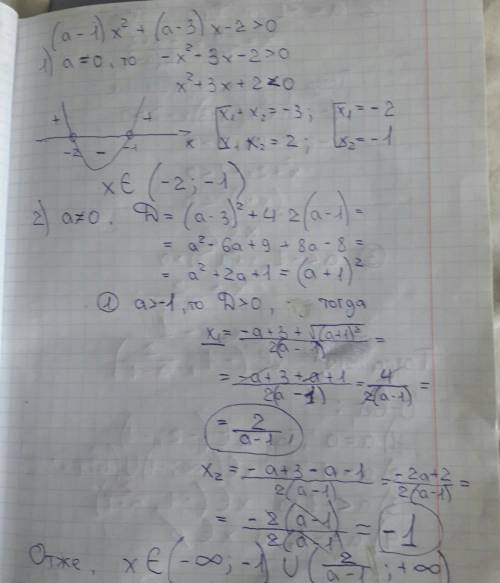 (a-1)x² + (a-3)x-2>0
1) a=0, то -x²-3x-2>0
x²+3x+2<0
+ - + -2 -1 x
[x₁+x₂=-3; [x₁=-2
x₁x₂=2; x₂=-1
x∈ (-2; -1)
2) a≠0. D = (a-3)²+4·2(a-1)=
= a²-6a+9+8a-8=
= a²+2a+1=(a+1)²
① a>-1, то D>0, тогда
x₁= (-a+3+√(a+1)²)/(2(a-1)) =
= (-a+3+a+1)/(2(a-1)) = 4/(2(a-1)) =
= 2/(a-1),
x₂ = (-a+3-a-1)/(2(a-1)) = (-2a+2)/(2(a-1)) =
= (-2(a-1))/(2(a-1)) = -1
Отже, x∈(-∞; -1) ∪ (2/(a-1); +∞)